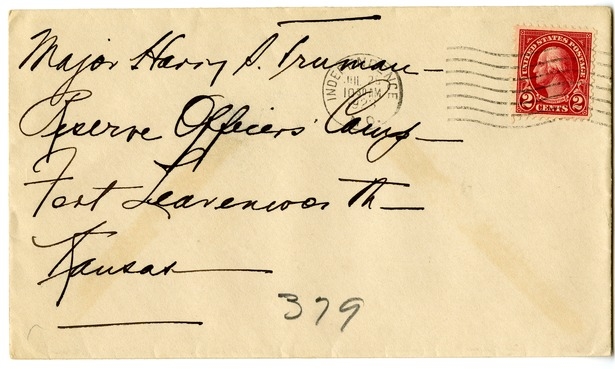 Major Harry S. Truman—
Reserve Officers' Camp—
Fort Leavenworth—
Kansas
379
INDEPENDENCE
10 30 AM
UNITED STATES POSTAGE
2 CENTS 2